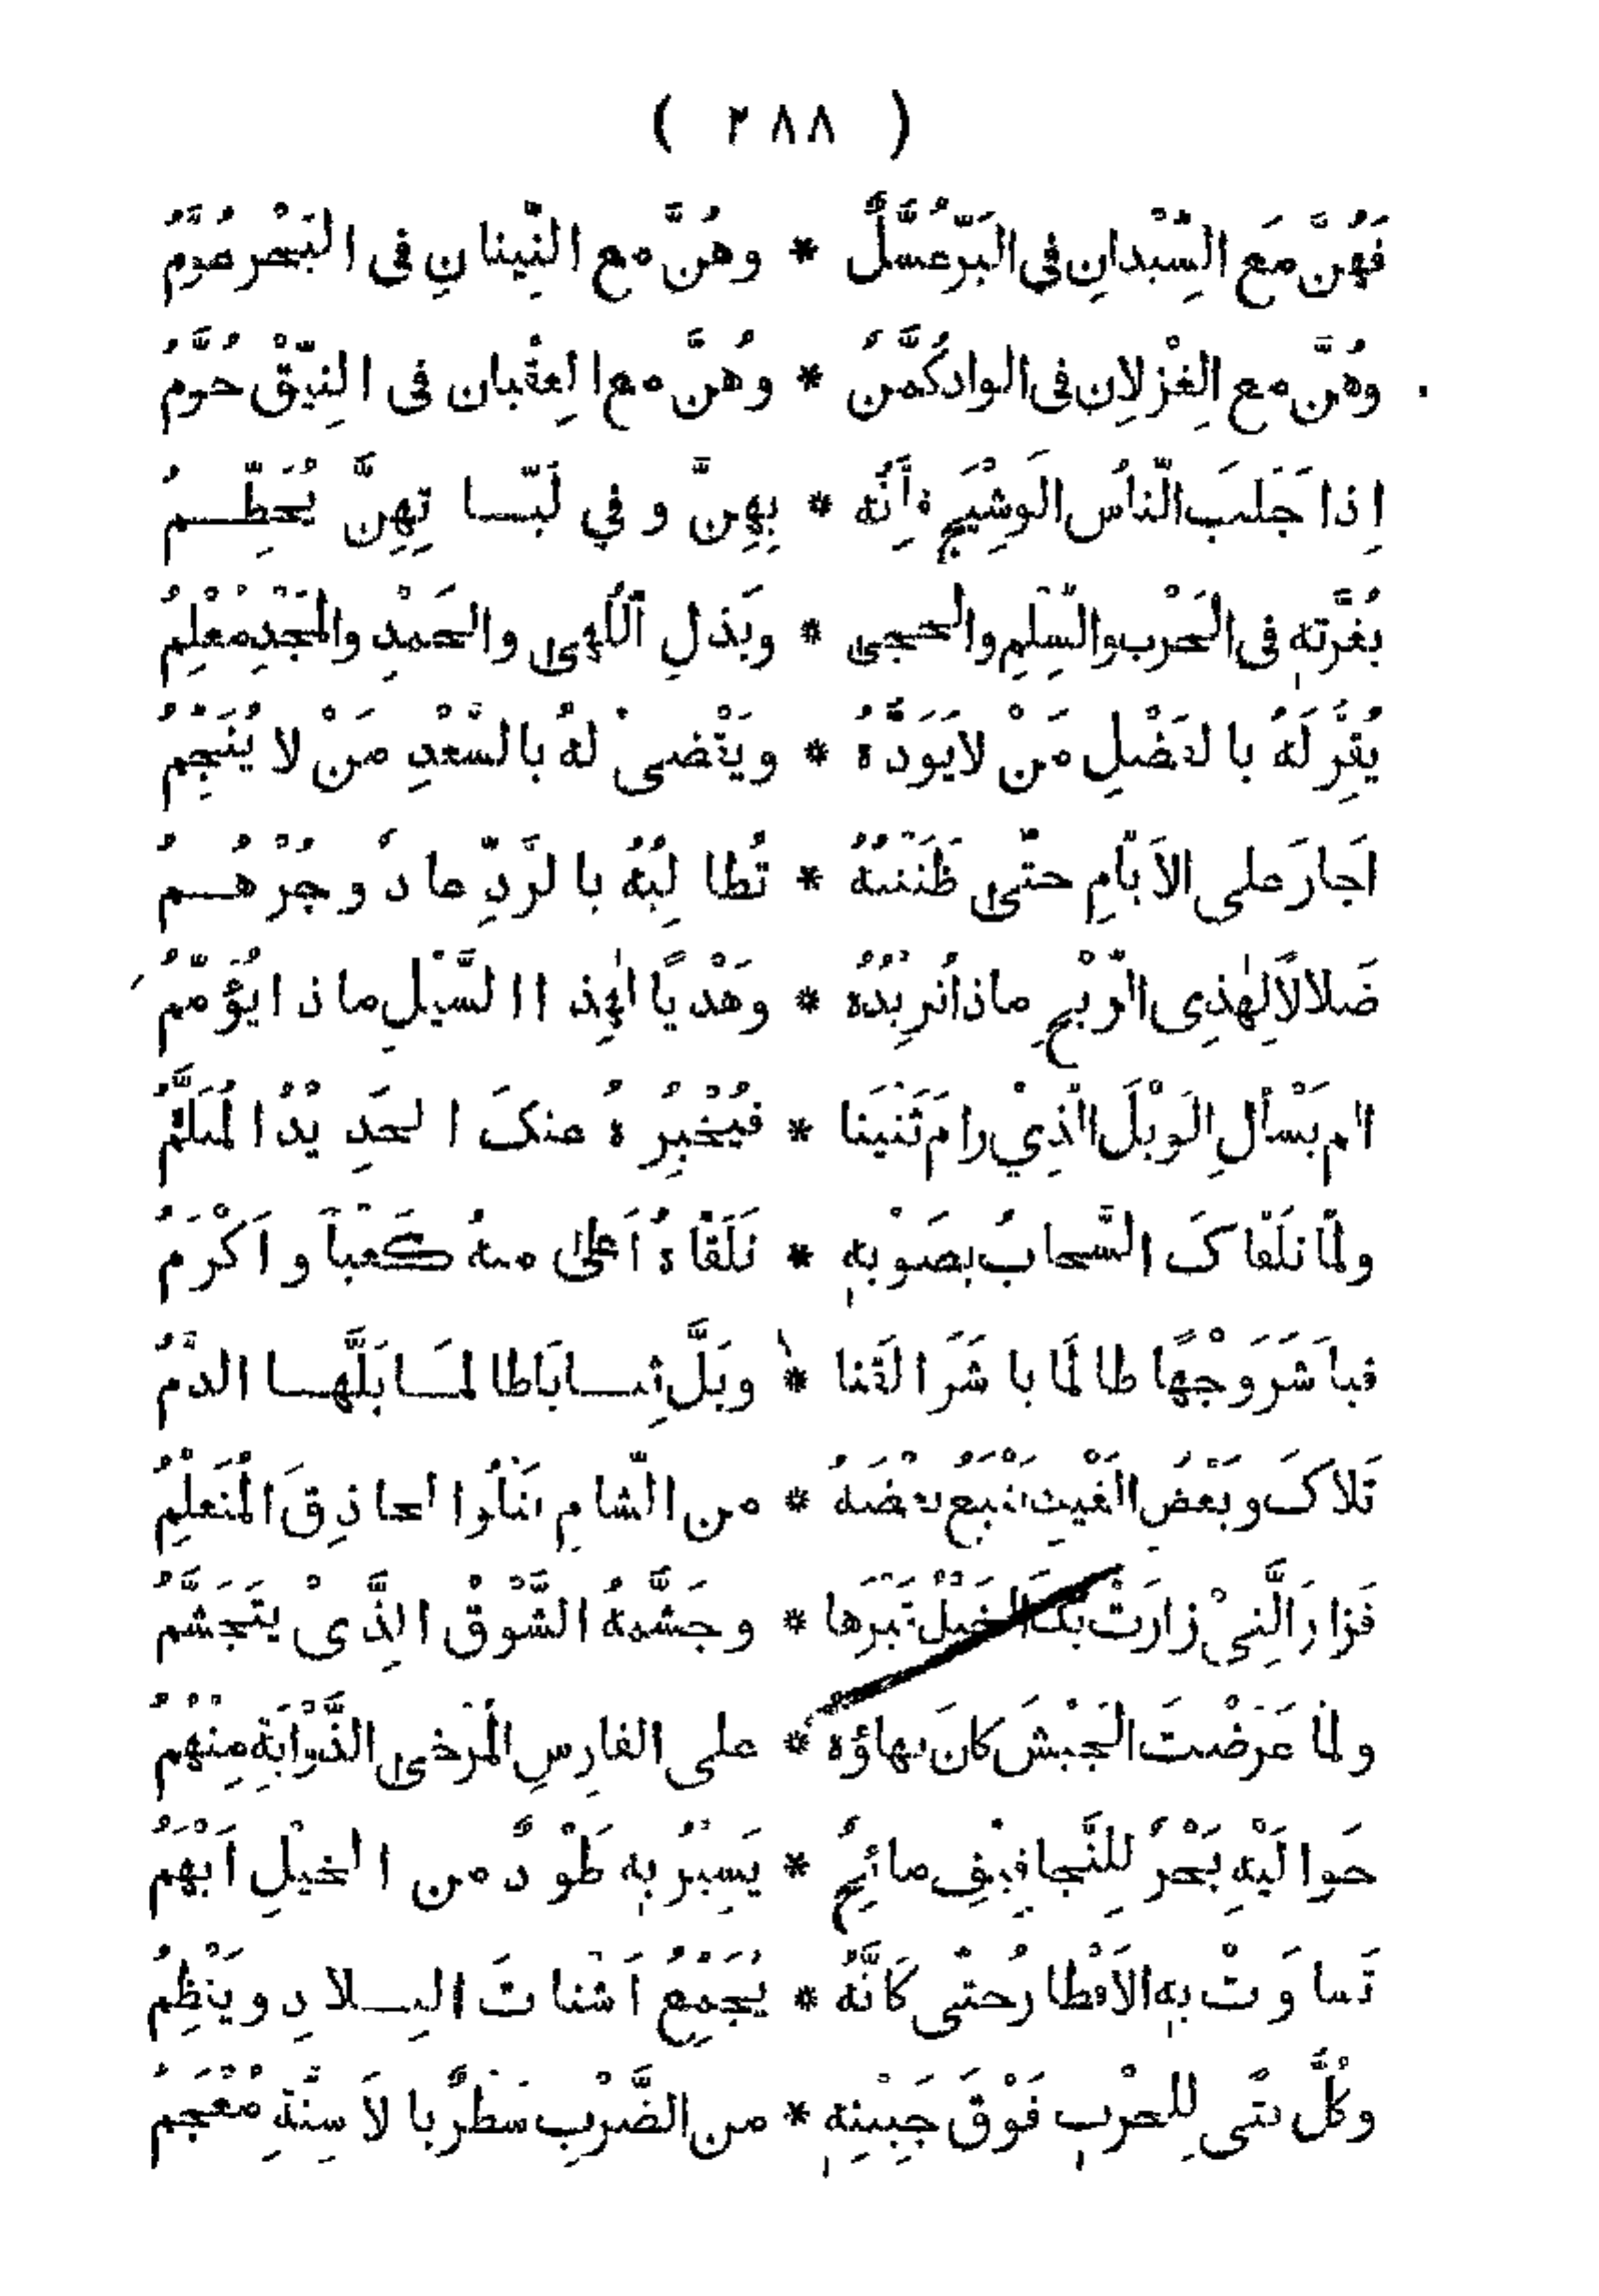 ( ٢٨٨ )
فَهُنَّ مَع السِّيْدانِ في البَرّ عُسَّلٌ * وهُنَّ مع النِّينانِ فى البَحْر عُوَّمُ
وهُنَّ مع الغِزْلانِ فى الوادكُمَّنٌ * وهُنَّ مع العِقْبان فى النِيّقْ حُوَّمُ
اِذا جَلَبَ النّاسُ الوَشِيْجَ فاِنَّه * بِهِنَّ وفي لَبّاتِهِنَّ يُحَطِّمُ
بغُرَّته فى الحَرْب والسِّلم والحجى * وبَذلِ اللُّهى والحَمْدِ والمَجْدِ مُعْلِمُ
يُقِرُّ لَهُ بالفَضْلِ مَنْ لايَوَدُّهُ * ويَقْضىْ لهُ بالسّعْدِ مَنْ لا يُنَجِّمُ
اَجارَ على الاَيّامِ حتّى ظَنَنْتُهُ * تُطالِبُهُ بالرَّدِّ عادٌ وجُرْهُمُ
ضَلالاً لِهٰذِى الرّيْحِ ماذا تُرِيْدُهُ * وهَدْيًا لهٰذِا السَّيْلِ ماذا يُؤَمّمُ
الم يَسْألِ الوَبْلَ الّذِيْ رامَ ثَنْيَنا * فيُخْبِرُهُ عنكَ الحَدِيْدُ المُثَلَّمُ
ولمّا تَلَقّاكَ السَّحابُ بصَوْبِهِ * تَلَقّاهُ اَعلى منهُ كَعْباً واَكْرَمُ
فباَشَرَ وَجْهًا طالمَا باشَرَ القَنا * وبَلَّ ثِياباَ طالمَا بَلَّها الدّمُ
تَلاكَ وبَعْضُ الغَيْثِ يَتْبَعُ بَعْضَهُ * من الشّامِ يَتْلُوا الحاذِقَ المُتَعَلِّمُ
فَزارَ الَّتِىْ زارَتْ بكَ الخَيْلُ قَبْرَها * وجَشَّمهُ الشَّوْقُ الِذَّىْ يتَجَشَّمُ
ولمّا عَرَضْتَ الجَيْشَ كانَ بهاؤهُ * على الفارِسِ المُرْخى الذَّوْابَةِ مِنْهُمُ
حَوالَيْهِ بَحْرٌ للِتَّجافِيْفِ مائِجٌ * يَسِيْرُ بِهِ طَوْدٌ من الخيْلِ اَيْهَمُ
تَساوَتْ بِهِ الاَقْطارُ حتّى كَانَّهُ * يُجَمِّعُ اَشْتاتَ البِلادِ ويَنْظِمُ
وكُلُّ فتًى لِلحْربِ فَوْقَ جَبِيْنِهِ * من الضَّرْبِ سَطْرٌ بالاَسِنَّةِ مُعْجَمُ